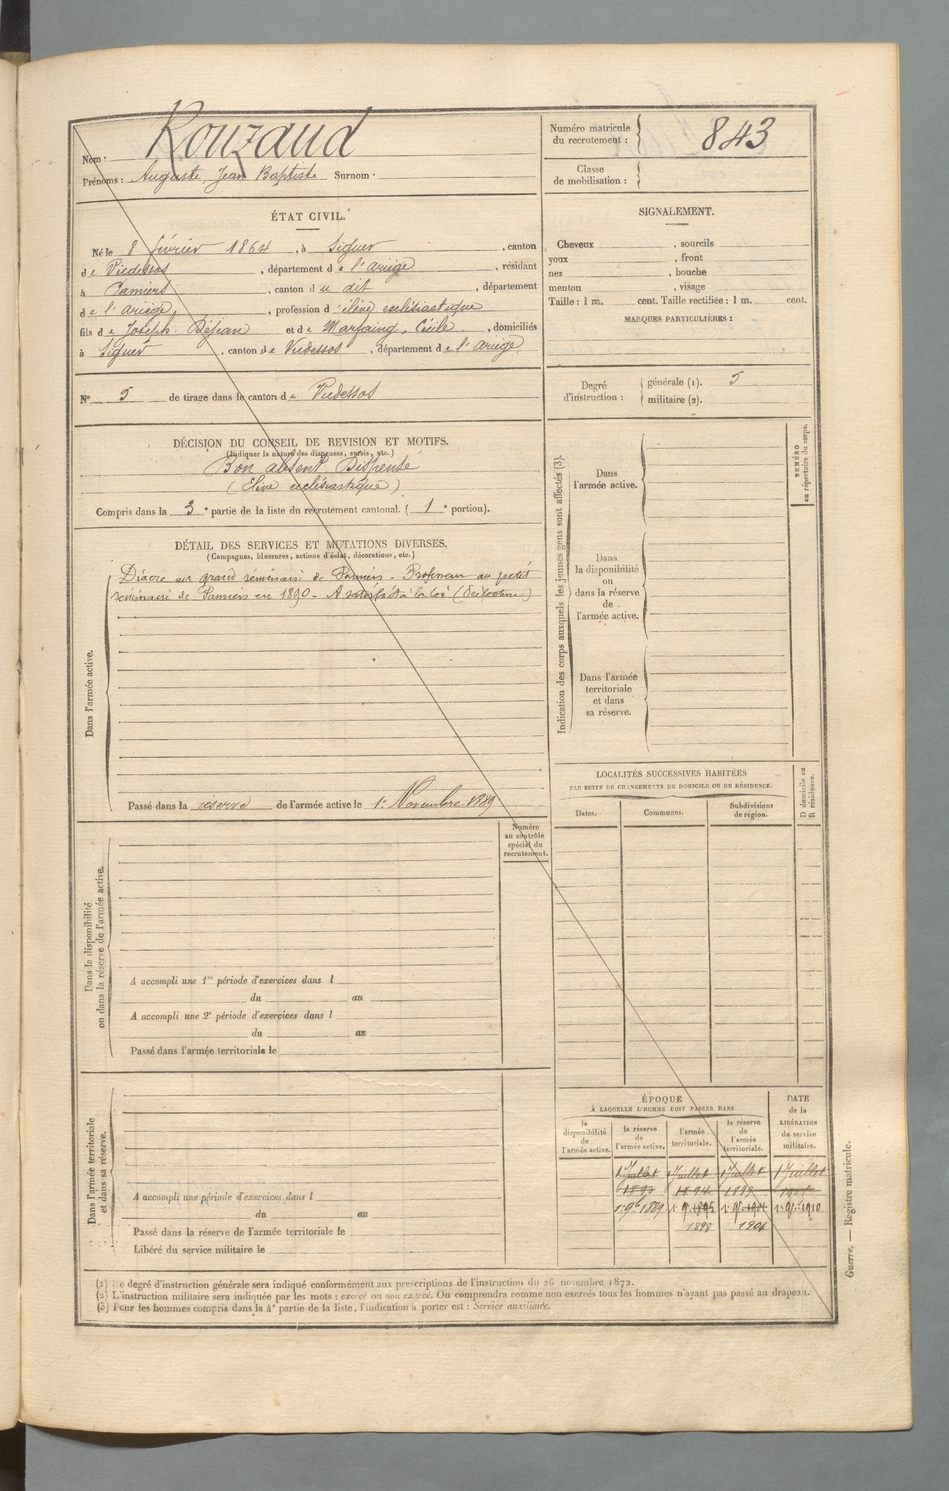 Nom : Rouzaud
Prénoms : Auguste Jean Baptiste Surnom :
Numéro matricule du recrutement : 843
Classe de mobilisation :
ÉTAT CIVIL.
Né le 8 février 1864, à Siguer, canton
de Vicdessos, département de l'ariège, résidant
à Pamiers, canton du dit, département
de l'ariège, profession d'élève ecclésiastique
fils de Joseph Déjean et de Marfaing, Cécile, domiciliés
à Siguer, canton de Vicdessos, département de l'ariège
N° 5 de tirage dans le canton de Vicdessos
DÉCISION DU CONSEIL DE REVISION ET MOTIFS.
(Indiquer la nature des dispenses, sursis, etc.)
Bon absent. Dispensé
(Elève ecclésiastique)
Compris dans la 3e partie de la liste du recrutement cantonal. (1e portion).
DÉTAIL DES SERVICES ET MUTATIONS DIVERSES.
(Campagnes, blessures, actions d'éclat, décorations, etc.)
Dans l'armée active.
Diacre au grand séminaire de Pamiers - Professeur au petit
séminaire de Pamiers en 1890 - A satisfait à la loi
Passé dans la réserve de l'armée active le 1er Novembre 1889
Numéro au contrôle spécial du recrutement.
Dans la disponibilité
ou dans la réserve de l'armée active.
A accompli une 1re période d'exercices dans l
du au
A accompli une 2e période d'exercices dans l
du au
Passé dans l'armée territoriale le
Dans l'armée territoriale
et dans sa réserve.
A accompli une période d'exercices dans l
du au
Passé dans la réserve de l'armée territoriale le
Libéré du service militaire le
SIGNALEMENT.
Cheveux , sourcils
yeux , front
nez , bouche
menton , visage
Taille : 1 m. cent. Taille rectifiée : 1 m. cent.
MARQUES PARTICULIÈRES :
Degré d'instruction : générale (1). 5
militaire (2).
Indication des corps auxquels les jeunes gens sont affectés (3).
NUMÉRO
au répertoire du corps.
Dans
l'armée active.
Dans
la disponibilité
ou
dans la réserve
de
l'armée active.
Dans l'armée
territoriale
et dans
sa réserve.
LOCALITÉS SUCCESSIVES HABITÉES
PAR SUITE DE CHANGEMENTS DE DOMICILE OU DE RÉSIDENCE.
D domicile ou
R résidence.
Dates. Communes. Subdivisions de région.
ÉPOQUE
À LAQUELLE L'HOMME DOIT PASSER DANS
DATE de la LIBÉRATION du service militaire.
la disponibilité de l'armée active. la réserve de l'armée active. l'armée territoriale. la réserve de l'armée territoriale.
1 Juillet 1 Juillet 1 Juillet 1 Juillet
1er 9bre 1889 1er 9bre 1895 1er 9bre 1901 1er 9bre 1910
1898 1904
(1) Le degré d'instruction générale sera indiqué conformément aux prescriptions de l'instruction du 26 novembre 1872.
(2) L'instruction militaire sera indiquée par les mots : exercé ou non exercé. On comprendra comme non exercés tous les hommes n'ayant pas passé au drapeau.
(3) Pour les hommes compris dans la 4e partie de la liste, l'indication à porter est : Service auxiliaire.
Guerre. — Registre matricule.